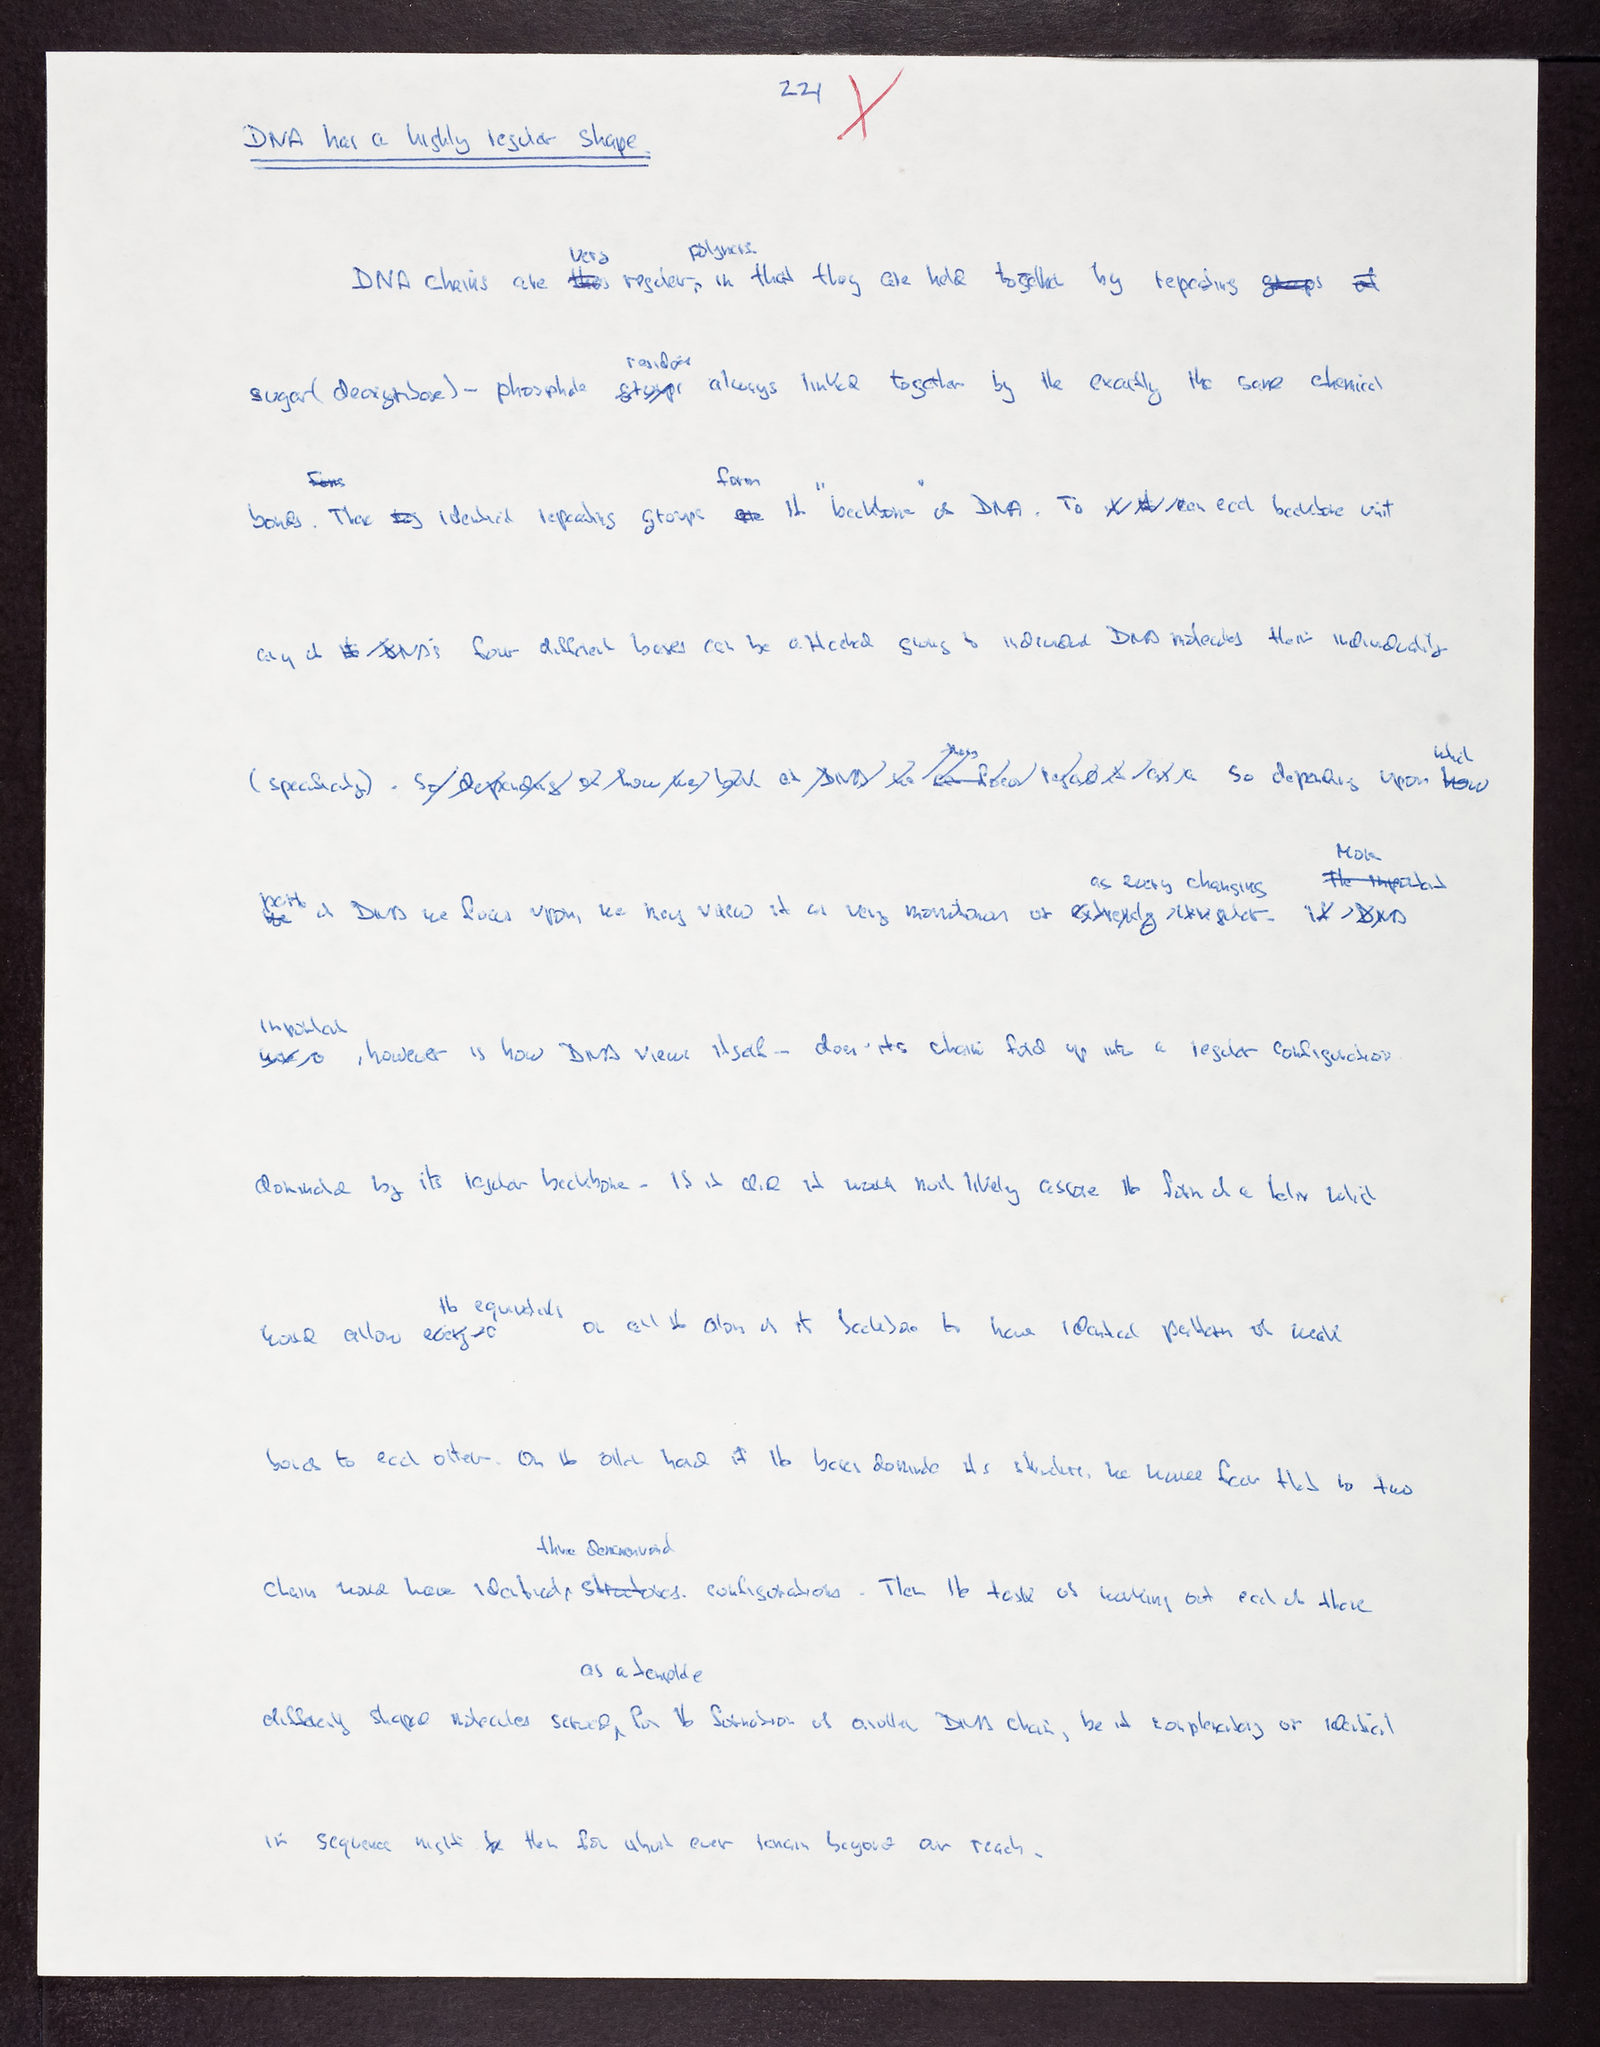 221 X
DNA has a highly regular shape.
very polymers
DNA chains are regular, in that they are held together by repeating groups of
residues
sugar (deoxyribose) - phosphate groups always linked together by the exactly the same chemical
form
bonds. These identical repeating groups are the "backbone" of DNA. To each backbone unit
any of DNA's four different bases can be attached giving to individual DNA molecules their individuality
which
(specificity). So depending on how we look at DNA we So depending upon how
as every changing More
The important
part of DNA we focus upon, we may view it as very monotonous or extremely irregular. DNA
important
, however is how DNA views itself - does its chain fold up into a regular configuration
dominated by its regular backbone. If it did it would most likely assume the form of a helix which
the equivalents
would allow on all the atoms of its backbone to have identical pattern of weak
bonds to each other. On the other hand if the bases dominate its structure, we would fear that no two
three dimensional
chain would have identical, structures. configurations. Then the task of working out each of these
as a template
differently shaped molecules served, for the formation of another DNA chain, be it complementary or identical
in sequence might be then for ever remain beyond our reach.